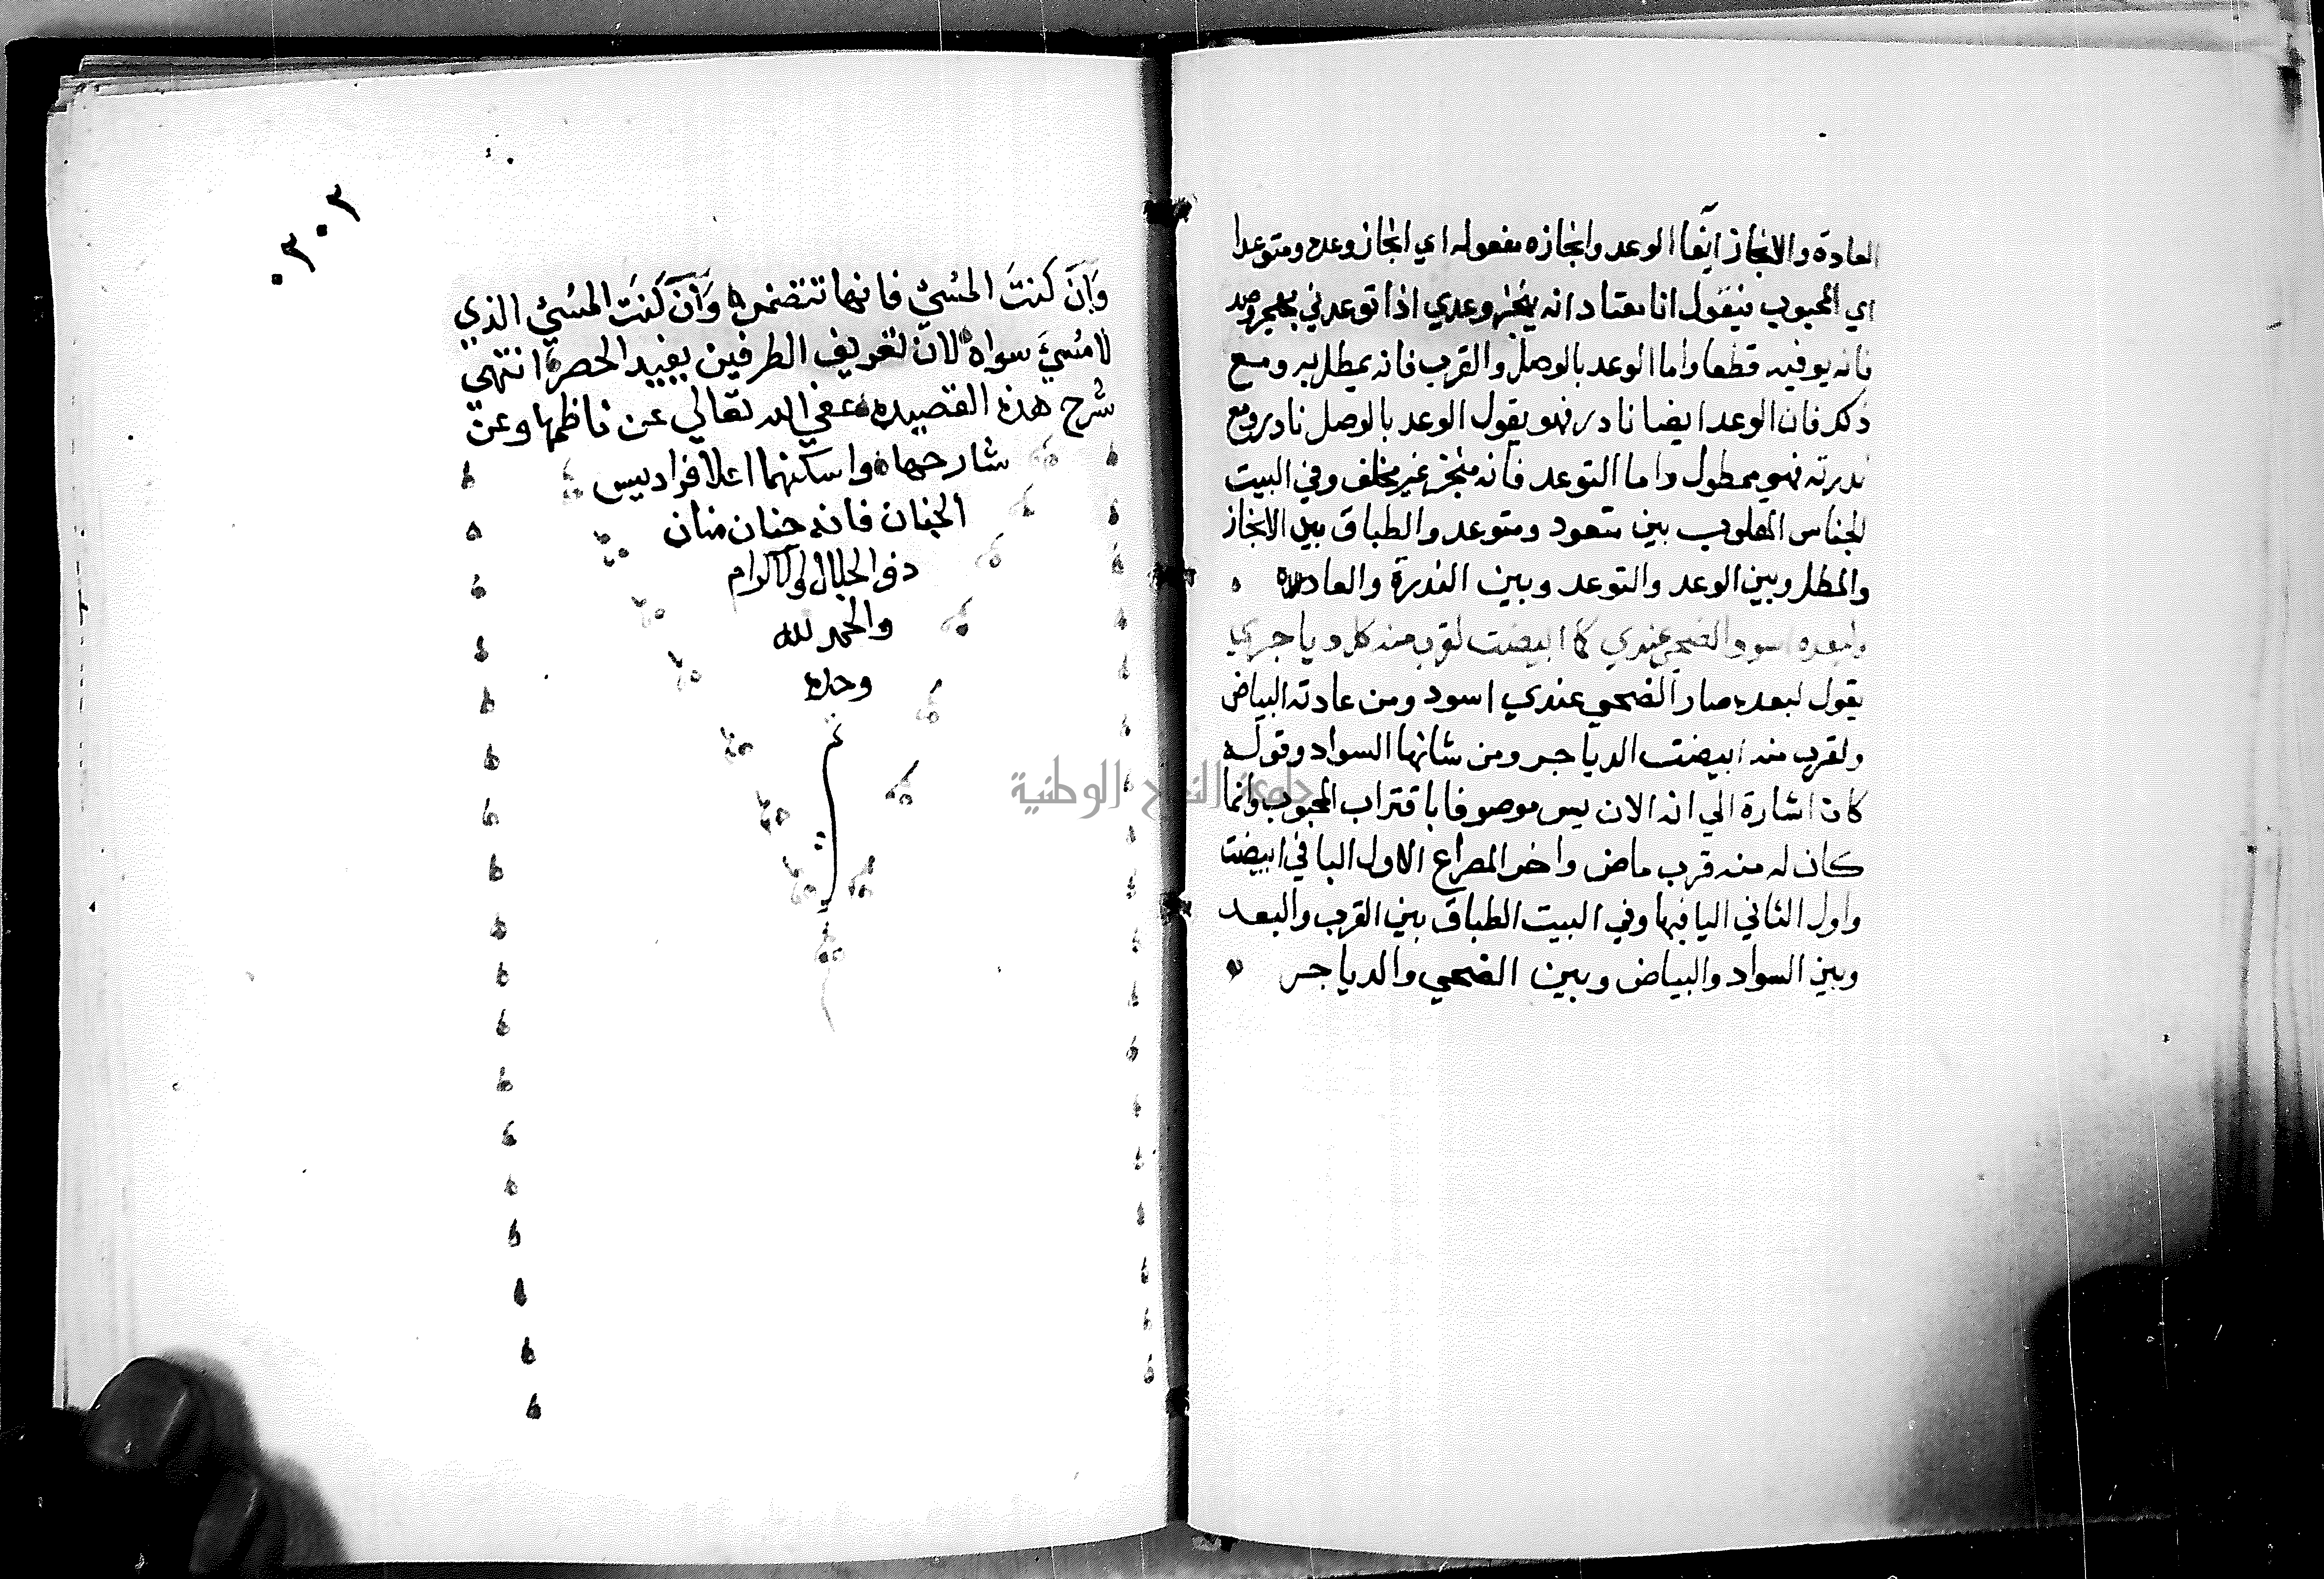 العادة والانجاز ايفا الوعد وانجازه مفعوله اي انجاز وعده ومتوعدا
اي المحبوب فيقول انا معتاد انه ينجز وعدي اذا توعدني بهجر وصد
فانه يوفيه قطعا واما الوعد بالوصل والقرب فانه يمطل به ومع
ذلك فان الوعد ايضا نادر فهو يقول الوعد بالوصل نادر ومع
ندرته فهو ممطول واما التوعد فانه منجز غير مخلف وفي البيت
الجناس المقلوب بين متعود ومتوعد والطباق بين الانجاز
والمطل وبين الوعد والتوعد وبين الندرة والعادة
لبعده اسود الضحي عندي كما ابيضت لقرب منه كان دياجري
يقول لبعده صار الضحي عندي اسود ومن عادته البياض
ولقرب منه ابيضت الدياجر ومن شانها السواد وقوله
كان اشارة الي انه الان ليس موصوفا باقتراب المحبوب وانما
كان له منه قرب ماض واخر المصراع الاول اليا في ابيضت
واول الثاني اليا فيها وفي البيت الطباق بين القرب والبعد
وبين السواد والبياض وبين الضحي والدياجر
٣٠٣٠
وَاِنَّ كنتَ المُسْيُ فانها تتضمن وَاَنَّ كَنَتَ المُسْيُ الذي
لا مُسْيَ سواه لان تعريف الطرفين يفيد الحصر انتهي
شرح هذه القصيده عفي الله تعالي عن ناظمها وعن
شارحها واسكنهما اعلا فراديس
الجنان فانه حنان منان
ذو الجلال والاكرام
والحمد لله
وحده
تم
جامعة النجاح الوطنية